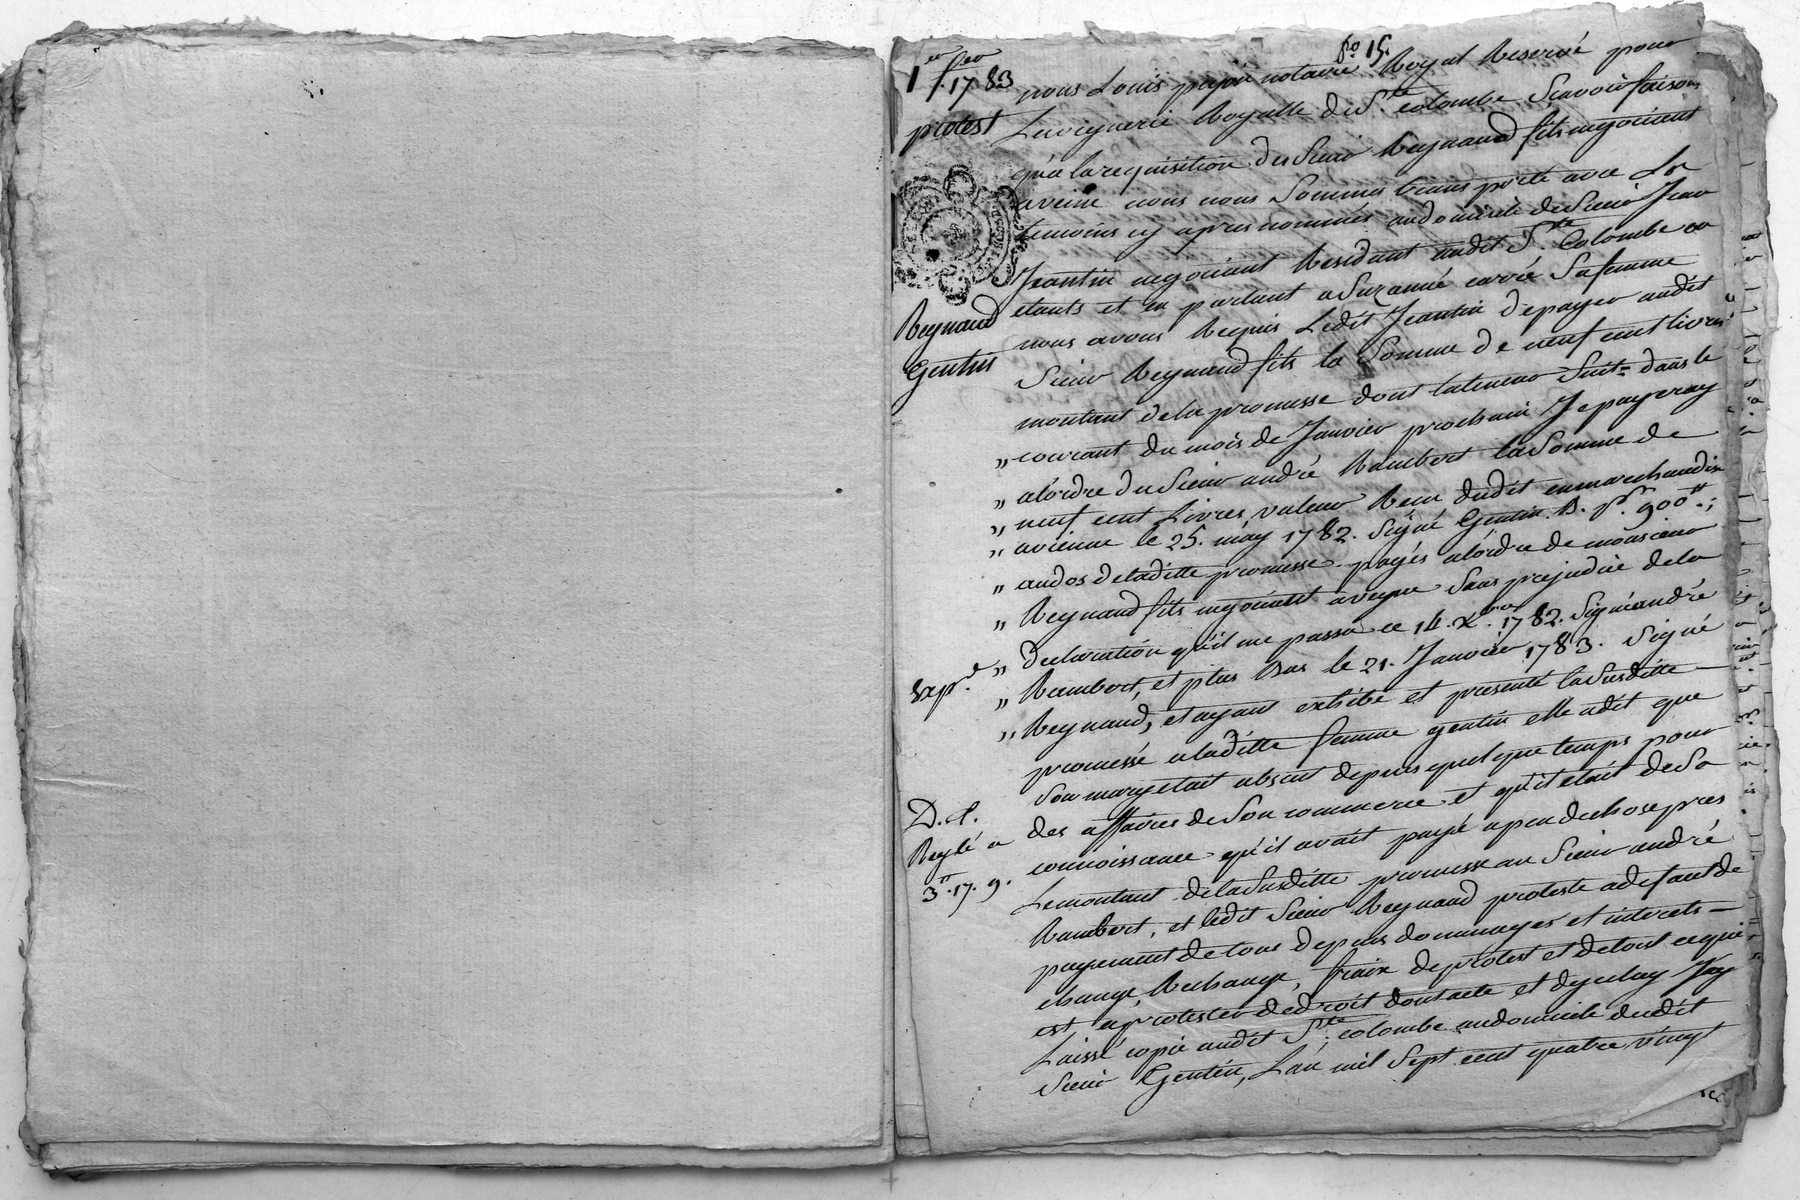 fo. 15.
1er fev
1783
protest
Reynaud
Gentin
exp.d
D. C.
Reglé a
3.lt 17. 9.
nous Louis pepin notaire Royal Reservé pour
La viguerie Royalle de Ste colombe Scavoir faisons
qu'a la requisition du Sieur Reynaud fils negociant
a veine nous nous Sommes transporté avec Les
temoins cy apres nommés au domicile de Sieur Jean
Jeantin negociant Residant audit Ste Colombe ou
etants et en parlant a Suzanne carré Sa femme
nous avons Requis Ledit Jeantin de payer audit
Sieur Reynaud fils la Somme de neuf cent livres
montant de la promesse dont la teneur Suit = dans le
" courant du mois de Janvier prochain Je payeray
" a lordre du Sieur andré Rambert la Somme de
" neuf cent Livres valeur Receu dudit en marchandise
" a vienne le 25. may 1782. Signé Gentin. B. pr. 900 lt.;
" au dos de laditte promesse payés a lordre de monsieur
" Reynaud fils negociant a veyne Sans prejudice de la
" declaration qu'il me passa ce 14. Xbre 1782. Signé andré
" Rambert, et plus Bas le 21. Janvier 1783. Signé
" Reynaud, et ayant exhibé et presenté la Susditte
promesse a laditte femme gentin elle a dit que
Son mary etait absent depuis quelque temps pour
des affaires de Son commerce et qu'il etait de Sa
connoissance qu'il avait payé a peu de chose pres
Le montant de la Susditte promesse au Sieur andré
Rambert, et ledit Sieur Reynaud proteste a defaut de
payement de tous depens dommages et interets
change, Rechange, fraix de protest et de tout ce qui
est a protester de droit dont acte et dyceluy Jay
Laissé copie audit Ste colombe au domicile dudit
Sieur Gentin, Lan mil Sept cent quatre vingt